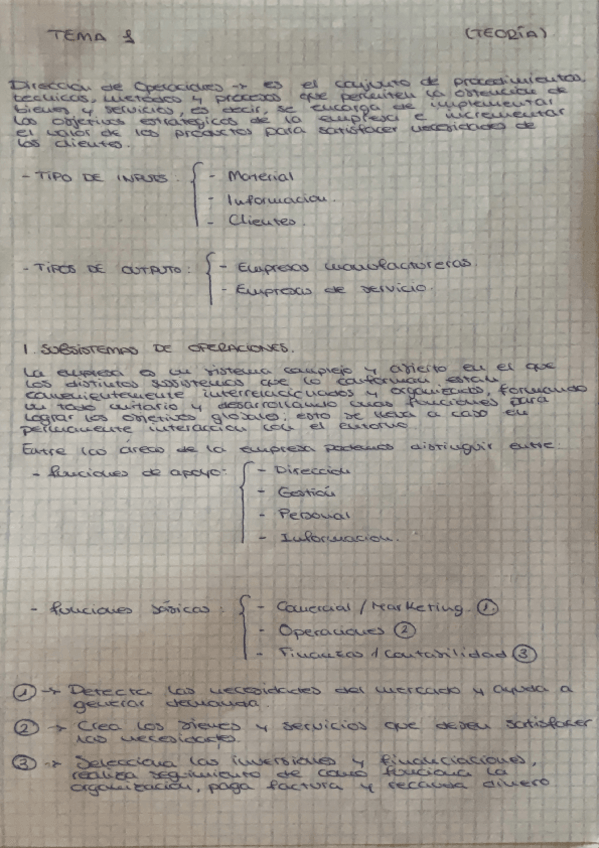 TEMA 1 (TEORÍA)
Dirección de Operaciones -> es el conjunto de procedimientos,
técnicas, métodos y procesos que permiten la obtención de
bienes y servicios, es decir, se encarga de implementar
los objetivos estratégicos de la empresa e incrementar
el valor de los productos para satisfacer necesidades de
los clientes.
- TIPO DE INPUTS: { - Material
- Informacion.
- Clientes.
- TIPOS DE OUTPUTS: { - Empresas manufactureras.
- Empresas de servicio.
1. SUBSISTEMAS DE OPERACIONES.
La empresa es un sistema complejo y abierto en el que
los distintos subsistemas que lo conforman están
convenientemente interrelacionados y organizados, formando
un todo unitario y desarrollando unas funciones para
lograr los objetivos globales, esto se lleva a cabo en
permanente interacción con el entorno.
Entre las áreas de la empresa podemos distinguir entre:
- funciones de apoyo: { - Dirección
- Gestión
- Personal
- Informacion.
- funciones básicas: { - Comercial / Marketing. ①
- Operaciones ②
- Finanzas / contabilidad ③
① -> Detecta las necesidades del mercado y ayuda a
generar demanda.
② -> Crea los bienes y servicios que deben satisfacer
las necesidades.
③ -> Selecciona las inversiones y financiaciones,
realiza seguimiento de como funciona la
organización, paga factura y recauda dinero.